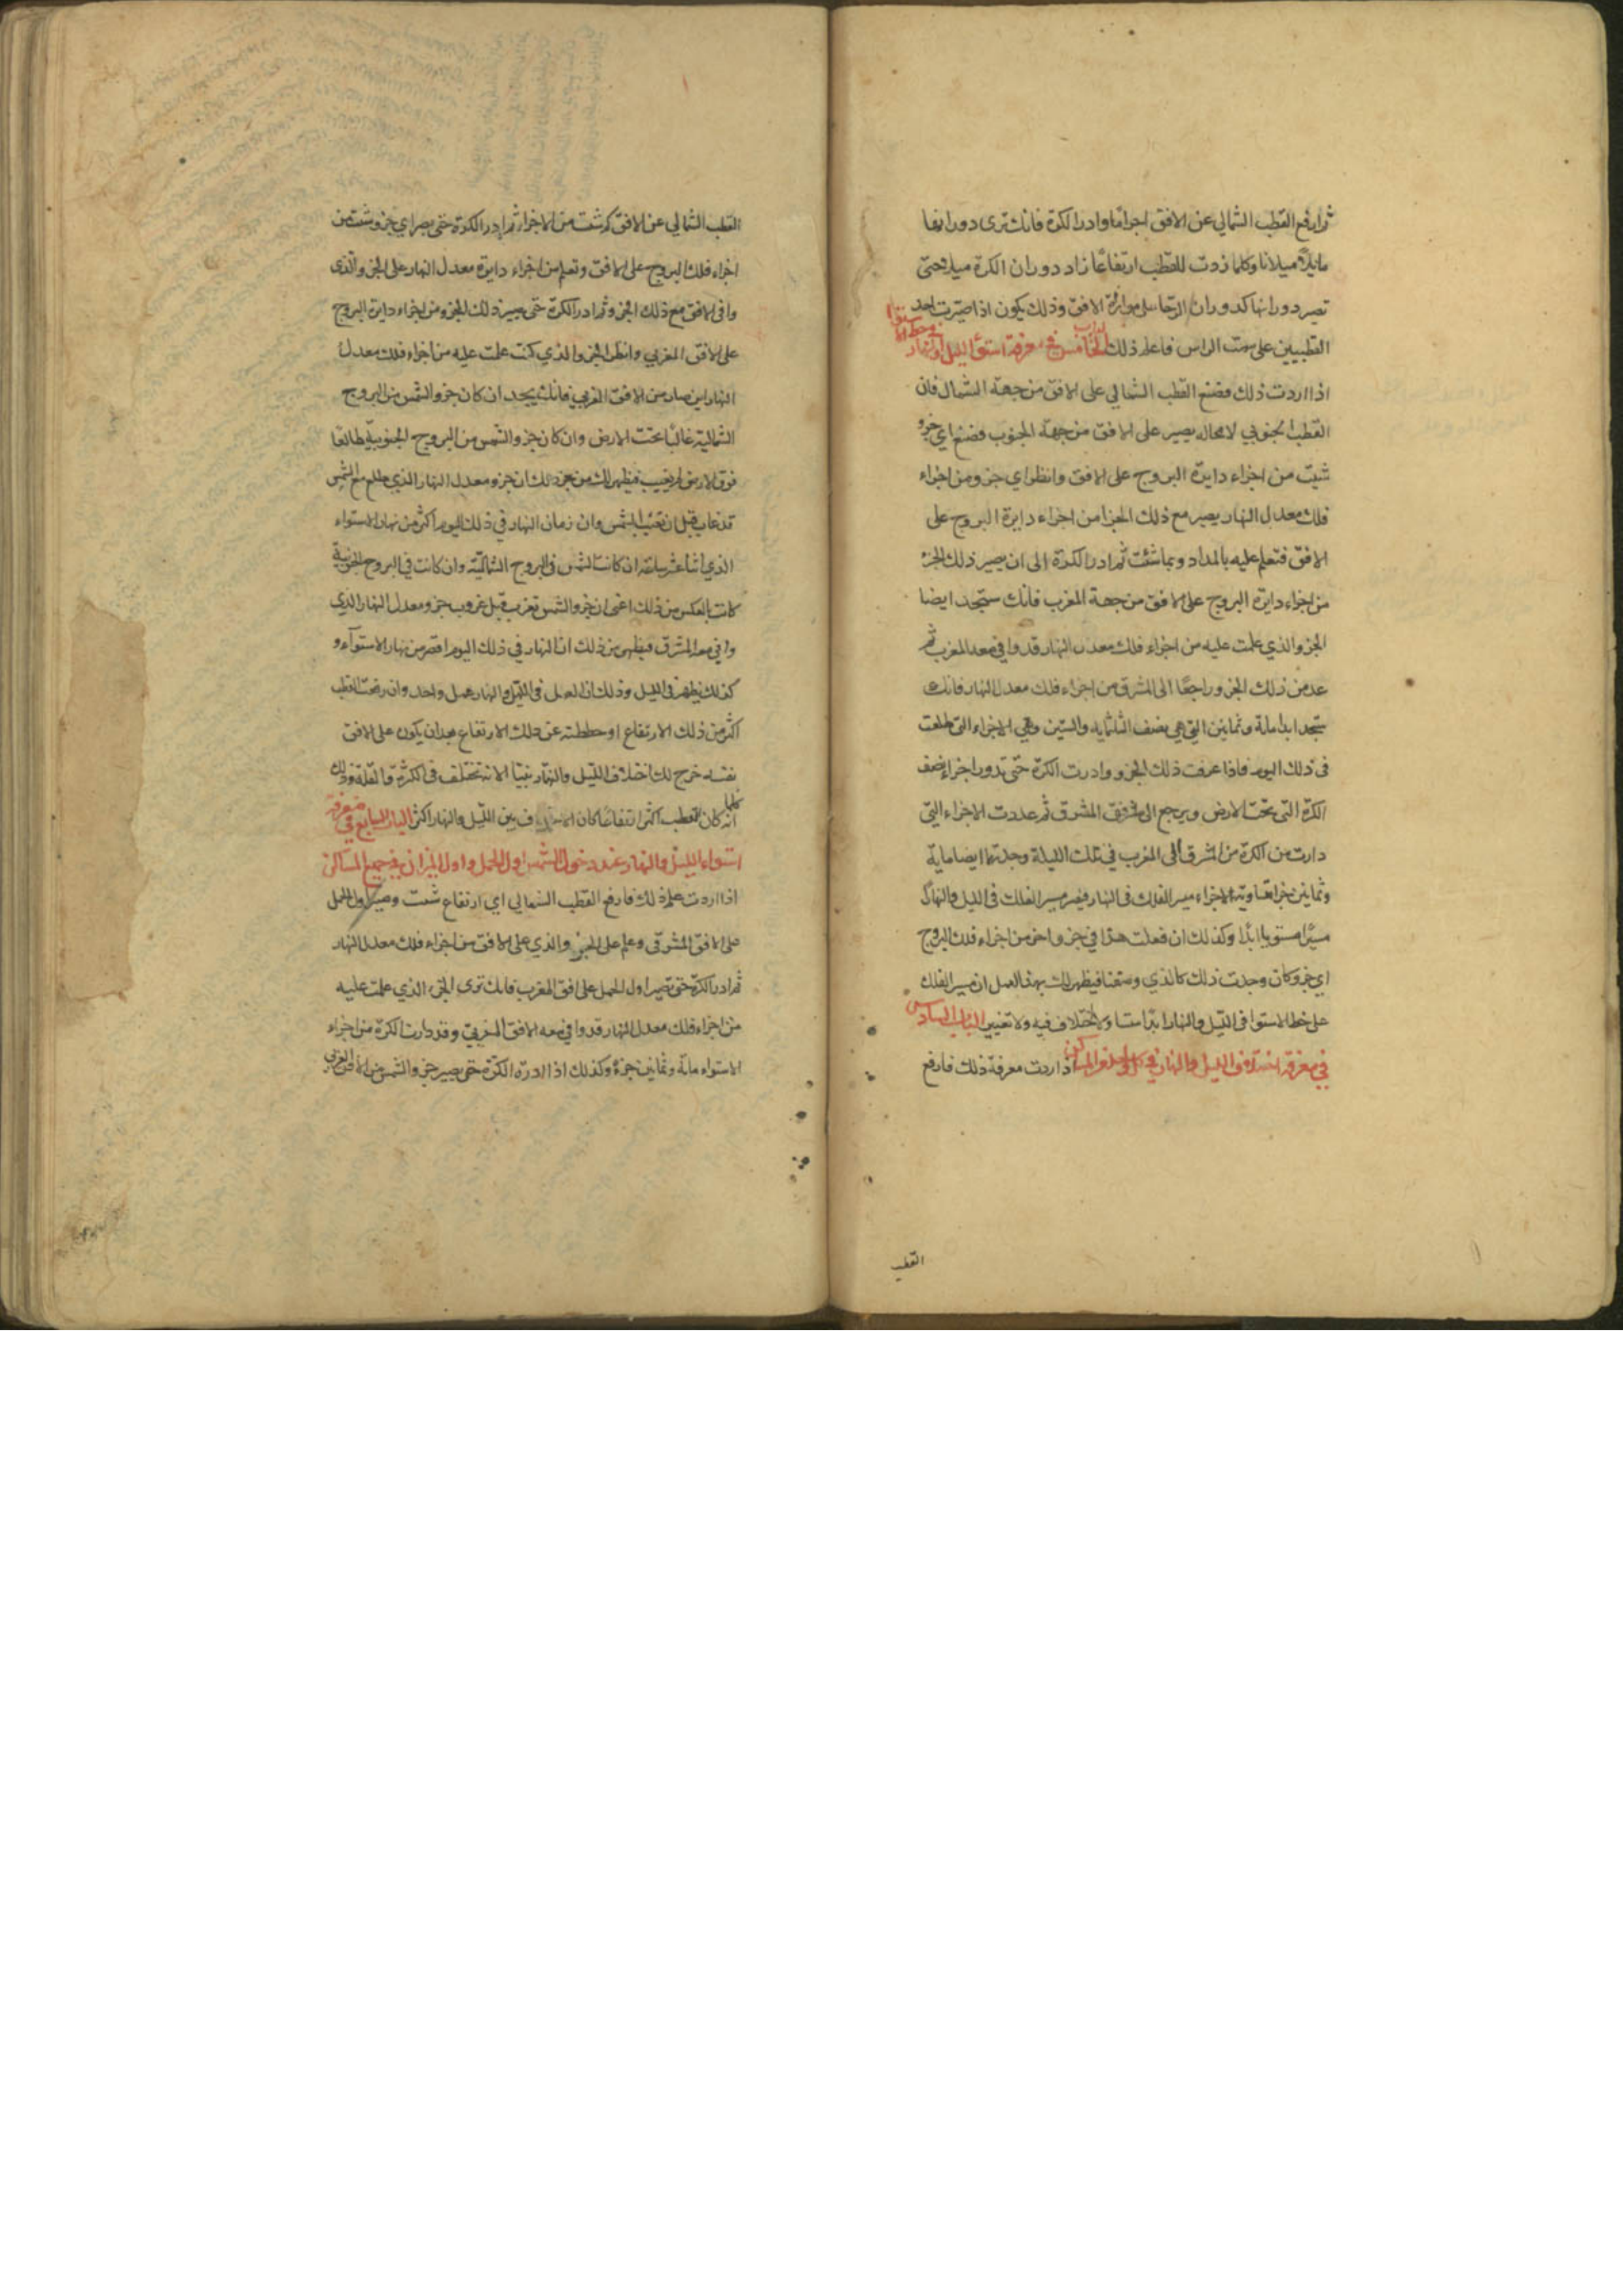 ثم ارفع القطب الشمالي عن الافق اجزاما وادر الكرة فانك ترى دورانها
مايلا ميلانا وكلما زدت للقطب ارتفاعا زاد دوران الكرة ميلا حتى
تصير دورانها كدوران الرحا على موازاة الافق وذلك يكون اذا صيرت احد
القطبين على سمت الراس فاعلم ذلك الباب الخامس في معرفة استوا الليل والنهار
في خط الاستوا
اذا اردت ذلك فضع القطب الشمالي على الافق من جهة الشمال فان
القطب الجنوبي لا محاله يصير على الافق من جهة الجنوب فضع اي جزو
شيت من اجزاء دايرة البروج على الافق وانظر اي جزو من اجزاء
فلك معدل النهار يصير مع ذلك الجزا من اجزاء دايرة البروج على
الافق فتعلم عليه بالمداد وبما شئت ثم ادر الكرة الى ان يصير ذلك الجزء
من اجزاء دايرة البروج على الافق من جهة المغرب فانك ستجد ايضا
الجزو الذي علمت عليه من اجزاء فلك معدل النهار قد وافي معه المغرب ثم
عد من ذلك الجزو راجعا الى المشرق من اجزاء فلك معدل النهار فانك
ستجد ابدا ماية وثمانين التي هي نصف الثلثماية والستين وهي الاجزاء التي طلعت
في ذلك اليوم فاذا عرفت ذلك الجزو وادرت الكرة حتى تدور اجزاء نصف
الكرة التي تحت الارض ويرجع الى فوق المشرق ثم عددت الاجزاء التي
دارت من الكرة من المشرق الى المغرب في تلك الليلة وجدتها ايضا ماية
وثمانين جزا متساوية لاجزاء مسير الفلك في النهار فيصير مسير الفلك في الليل والنهار
مسيرا مستويا ابدا وكذلك ان فعلت هذا في جزو اخر من اجزاء فلك البروج
اي جزو كان وجدت ذلك كالذي وصفنا فيظهر لك بهذا العمل ان مسير الفلك
على خط الاستوا في الليل والنهار ابدا متساو لا اختلاف فيه ولا تغيير الباب السادس
في معرفة اختلاف الليل والنهار في كل واحد من المساكن اذا اردت معرفة ذلك فارفع
القطب
القطب الشمالي عن الافق كم شئت من الاجزاء ثم ادر الكرة حتى يصير اي جزو شئت من
اجزاء فلك البروج على الافق وتعلم من اجزاء دايرة معدل النهار على الجزو الذي
وافى الافق مع ذلك الجزو ثم ادر الكرة حتى يصير ذلك الجزو من اجزاء دايرة البروج
على الافق المغربي وانظر الجزو الذي كنت علمت عليه من اجزاء فلك معدل
النهار اين صار من الافق المغربي فانك تجد ان كان جزو الشمس من البروج
الشمالية غائبا تحت الارض وان كان جزو الشمس من البروج الجنوبية طالعا
فوق الارض لم يغيب فيظهر لك من ذلك ان جزو معدل النهار الذي طلع مع الشمس
قد غاب قبل ان تغيب الشمس وان زمان النهار في ذلك اليوم اكثر من نهار الاستواء
الذي اثنا عشر ساعة ان كانت الشمس في البروج الشمالية وان كانت في البروج الجنوبية
كانت بالعكس من ذلك اعني ان جزو الشمس تغرب قبل غروب جزو معدل النهار الذي
وافي معه المشرق فيظهر من ذلك ان النهار في ذلك اليوم اقصر من نهار الاستواء و
كذلك يظهر في الليل وذلك ان العمل في الليل والنهار عمل واحد وان رفعت القطب
اكثر من ذلك الارتفاع او حططته عن ذلك الارتفاع بعد ان يكون على الافق
نفسه خرج لك اختلاف الليل والنهار بينا الا انه تختلف في الكثرة والقلة وذلك
انه كلما كان القطب اكثر ارتفاعا كان بين الليل والنهار اكثر الباب السابع في معرفة
استواء الليل والنهار عند دخول الشمس اول الحمل واول الميزان في جميع المساكن
اذا اردت علم ذلك فارفع القطب الشمالي اي ارتفاع شئت وصير اول الحمل
على الافق المشرقي وعلم على الجزو الذي على الافق من اجزاء فلك معدل النهار
ثم ادر الكرة حتى يصير اول الحمل على افق المغرب فانك ترى الجزء الذي علمت عليه
من اجزاء فلك معدل النهار قد وافي معه الافق المغربي وقد دارت الكرة من اجزاء
الاستواء ماية وثمانين جزءا وكذلك اذا ادرة الكرة حتى يصير جزو الشمس من الافق الغربي